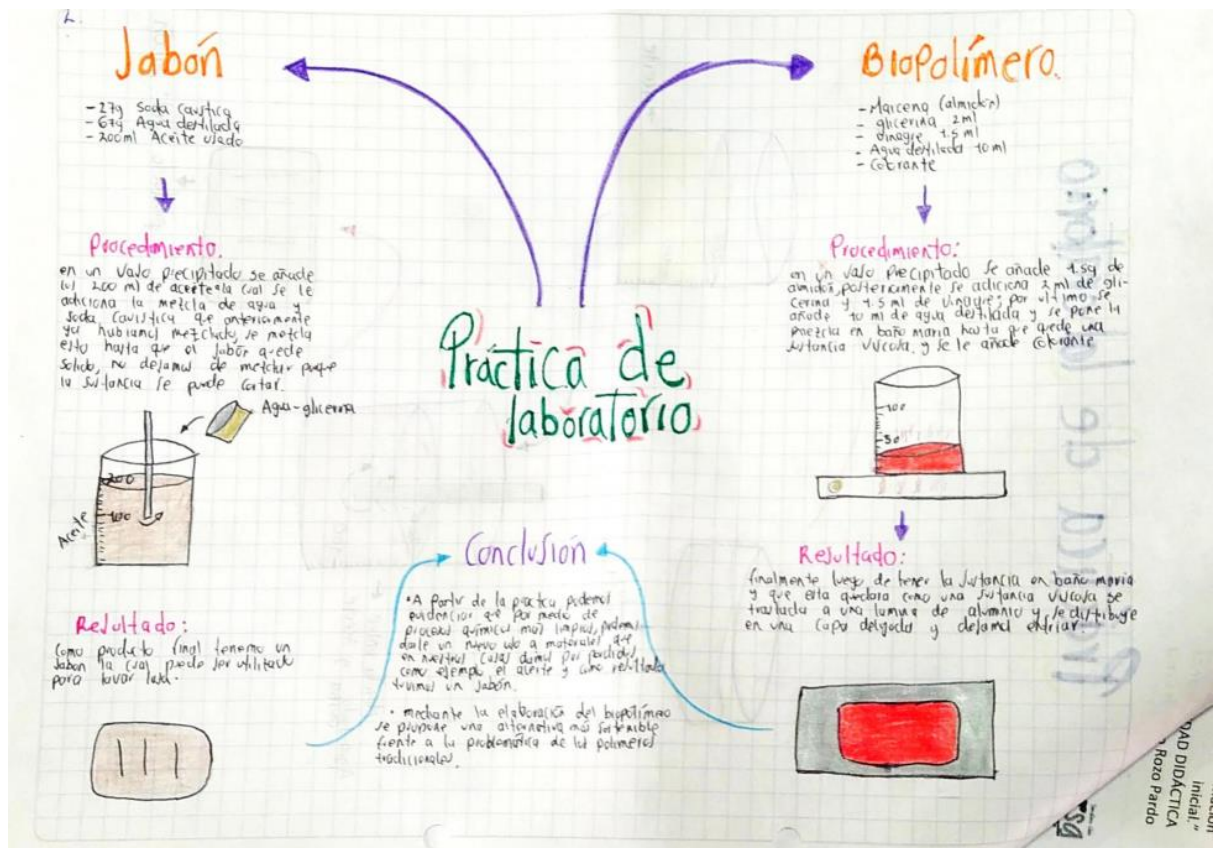 2.
Jabón
- 27g Soda caustica
- 67g Agua destilada
- 200ml Aceite usado
Procedimiento.
en un vaso precipitado se añade
200 ml de aceite a la cual se le
adiciona la mezcla de agua y
soda caustica que anteriormente
ya hubiamos mezclado, se mezcla
esto hasta que el jabón quede
solido, no dejamos de mezclar porque
la sustancia se puede cortar.
Agua-glicerina
200
100
Aceite
Resultado:
Como producto final tenemos un
jabon la cual puede ser utilizado
para lavar loza.
Práctica de
laboratorio
Biopolímero.
- Maicena (almidón)
- glicerina 2ml
- vinagre 1.5 ml
- Agua destilada 10 ml
- Colorante
Procedimiento:
en un vaso precipitado se añade 1.5g de
almidon, posteriormente se adiciona 2 ml de gli-
cerina y 1.5 ml de vinagre; por ultimo se
añade 10 ml de agua destilada y se pone la
mezcla en baño maria hasta que quede una
sustancia viscosa, y se le añade colorante
100
50
Resultado:
finalmente luego de tener la sustancia en baño maria
y que esta quedara como una sustancia viscosa se
traslada a una lamina de aluminio y se distribuye
en una capa delgada y dejamos enfriar.
Conclusión
• A partir de la practica podemos
evidenciar que por medio de
procesos químicos más limpios, podemos
darle un nuevo uso a materiales que
en nuestras casas damos por perdidos
como ejemplo el aceite y como resultado
tuvimos un jabón.
• mediante la elaboración del biopolímero
se propone una alternativa más sostenible
frente a la problemática de los polimeros
tradicionales.
inicial."
DAD DIDÁCTICA
Rozo Pardo